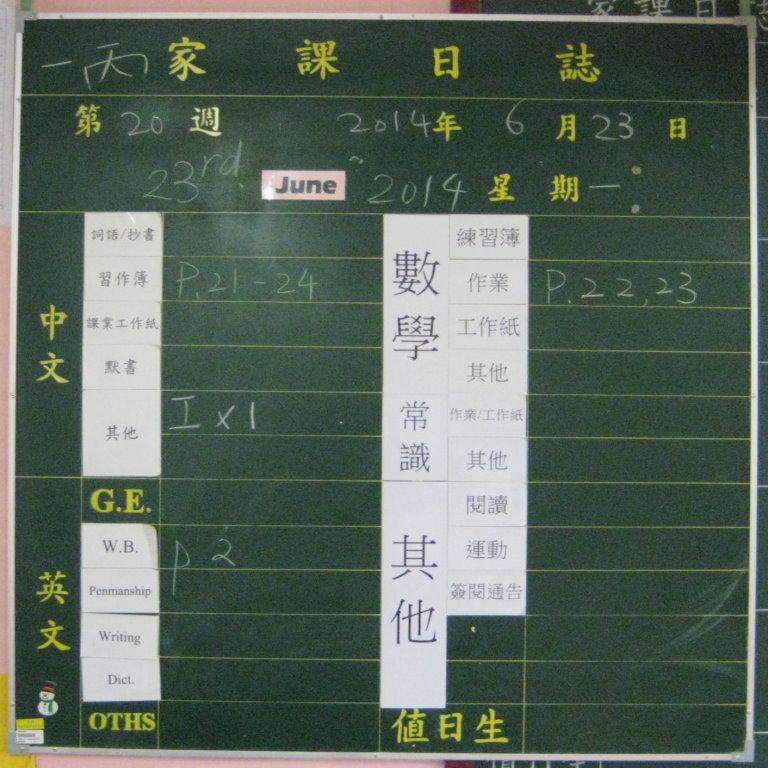 一丙 家課日誌
第 20 週 2014年 6 月 23 日
23rd June 2014 星期一:
中文
詞語/抄書
習作簿 P.21-24
課業工作紙
默書
其他 工x1
G.E.
英文
W.B. p 2
Penmanship
Writing
Dict.
OTHS
數學
練習簿
作業 P.22,23
工作紙
其他
常識
作業/工作紙
其他
其他
閱讀
運動
簽閱通告
值日生
家課日